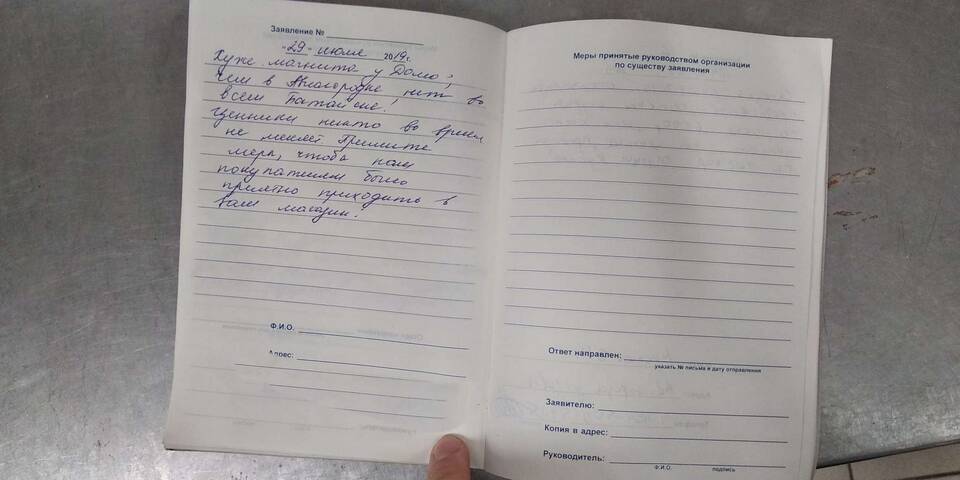 Заявление №
"29" июля 2019 г.
Хуже магнита у Домо!
Чем в Авиагородке нет во
всем Батайске!
Ценники никто во время
не меняет Примите
меры, чтобы нам
покупателям было
приятно приходить в
ваш магазин!
Ф.И.О.
Адрес:
Меры принятые руководством организации
по существу заявления
Ответ направлен:
указать № письма и дату отправления
Заявителю:
Копия в адрес:
Руководитель:
Ф.И.О. подпись